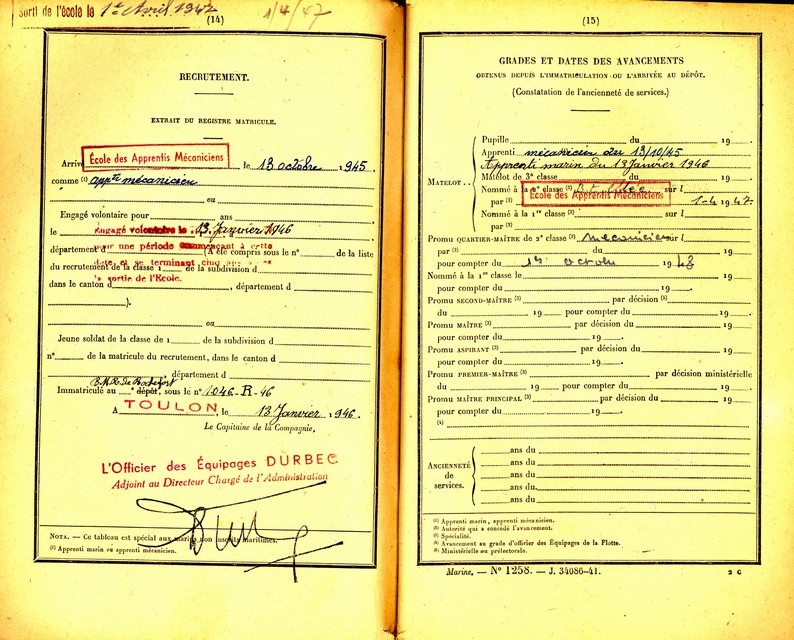 Sorti de l'école le 1er Avril 1947
1/4/47
(14)
RECRUTEMENT.
EXTRAIT DU REGISTRE MATRICULE.
Arrivé École des Apprentis Mécaniciens le 13 octobre 1945
comme (1) appti mécanicien
ou
Engagé volontaire pour ans
le Engagé volontaire le 13 Janvier 1946
pour une période commençant à cette
département (A été compris sous le n° de la liste
date et se terminant cinq ans
du recrutement de la classe 1 de la subdivision d
la sortie de l'École.
dans le canton d , département d
).
ou
Jeune soldat de la classe de 1 de la subdivision d
n° de la matricule du recrutement, dans le canton d
, département d
Immatriculé au e dépôt, sous le n° 1046-R-46
A TOULON, le 13 Janvier 1946.
Le Capitaine de la Compagnie,
L'Officier des Équipages DURBEC
Adjoint au Directeur Chargé de l'Administration
NOTA. — Ce tableau est spécial aux marins non inscrits maritimes.
(1) Apprenti marin ou apprenti mécanicien.
(15)
GRADES ET DATES DES AVANCEMENTS
OBTENUS DEPUIS L'IMMATRICULATION OU L'ARRIVÉE AU DÉPÔT.
(Constatation de l'ancienneté de services.)
MATELOT..
Pupille du 19
Apprenti mécanicien du 13/10/45
Apprenti marin du 13 Janvier 1946
Matelot de 3e classe du 19
Nommé à la 2e classe (3) sur l
École des Apprentis Mécaniciens
par (2) 1-4 1947
Nommé à la 1re classe (3) sur l
par (2) 19
Promu QUARTIER-MAÎTRE de 2e classe (3) mécanicien sur l
par (2) du 19
pour compter du 1er octobre 1948
Nommé à la 1re classe le 19
Promu SECOND-MAÎTRE (3) par décision (5)
du 19 pour compter du 19
Promu MAÎTRE (3) par décision du 19
pour compter du 19
Promu ASPIRANT (3) par décision du 19
pour compter du 19
Promu PREMIER-MAÎTRE (3) par décision ministérielle
du 19 pour compter du 19
Promu MAÎTRE PRINCIPAL (3) par décision du 19
pour compter du 19
(4)
ANCIENNETÉ
de
services.
ans du
ans du
ans du
ans du
ans du
(1) Apprenti marin, apprenti mécanicien.
(2) Autorité qui a concédé l'avancement.
(3) Spécialité.
(4) Avancement au grade d'officier des Équipages de la Flotte.
(5) Ministérielle ou préfectorale.
Marine. — N° 1258. — J. 34086-41.
2 C